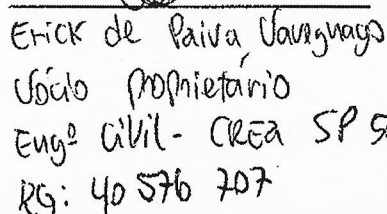 Erick de Paiva Vavegnago
Sócio proprietário
Engº Civil - CREA SP 5
RG: 40 576 707